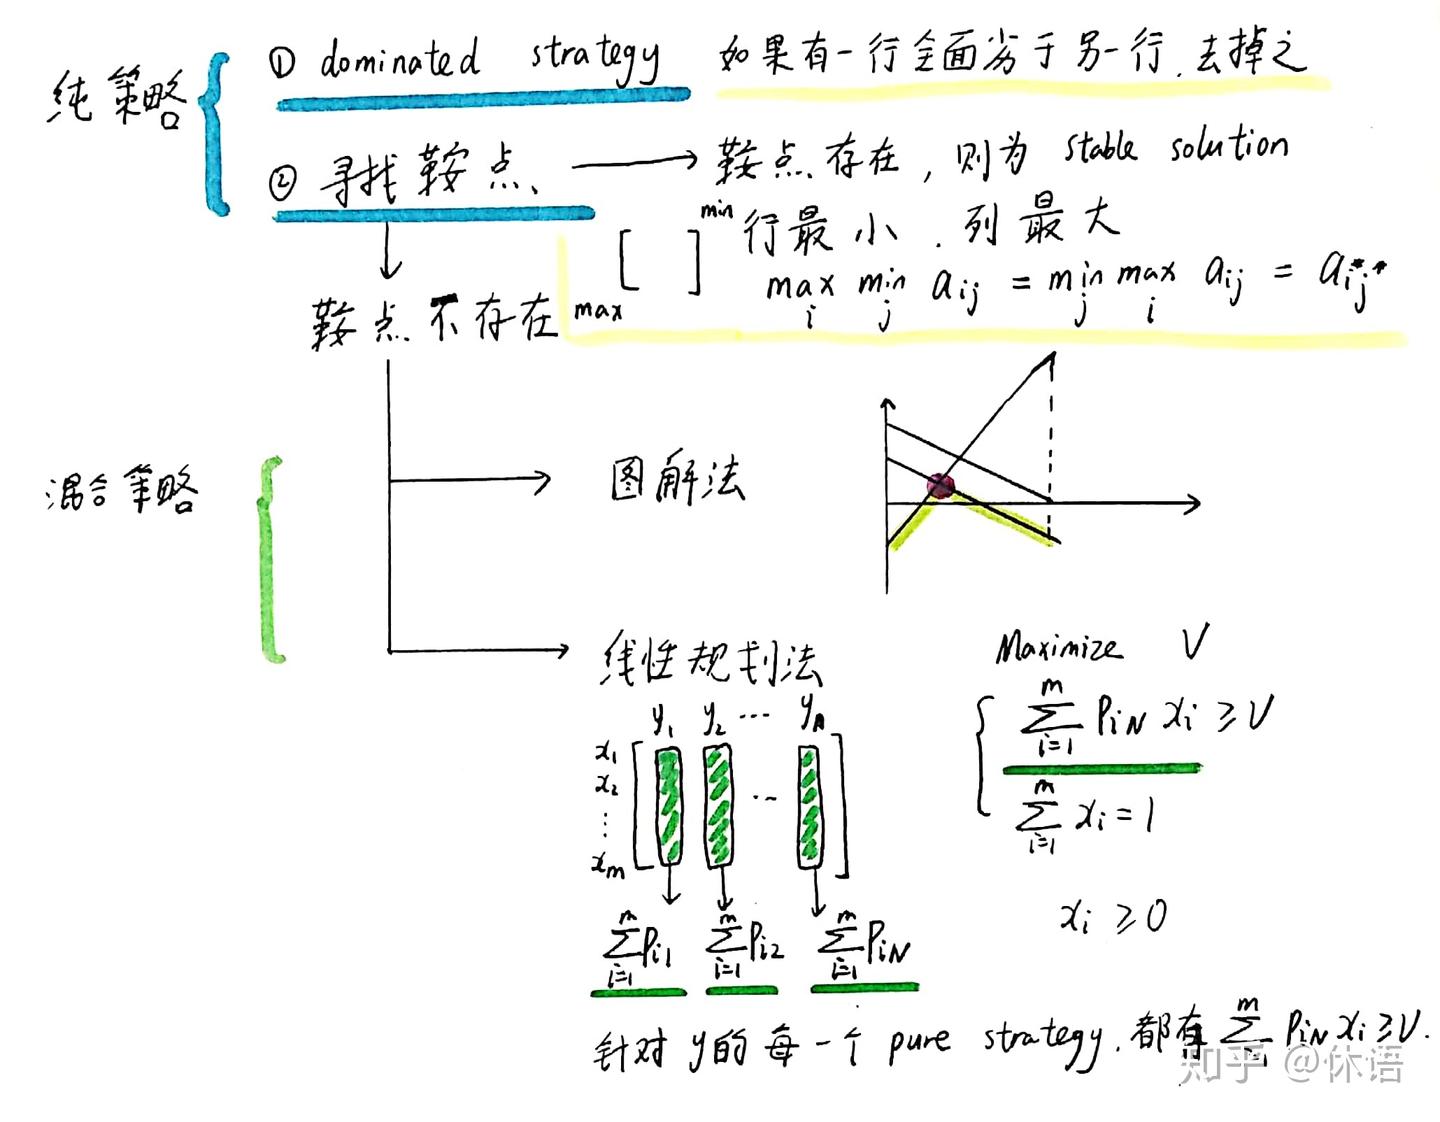 纯策略
① dominated strategy 如果有一行全面劣于另一行,去掉之
② 寻找鞍点、 → 鞍点存在,则为 stable solution
[ ] min 行最小,列最大
max
max min aij = min max aij = ai*j*
i j j i
鞍点不存在
混合策略
图解法
线性规划法
y1 y2 ...
x1
x2
⋮
xm
...
∑ i=1 m Pi1 ∑ i=1 m Pi2 ∑ i=1 m PiN
Maximize V
∑ i=1 m PiN xi ≥ V
∑ i=1 m xi = 1
xi ≥ 0
针对 y的每一个 pure strategy,都有 ∑ m PiN xi ≥ V.
知乎 @休语